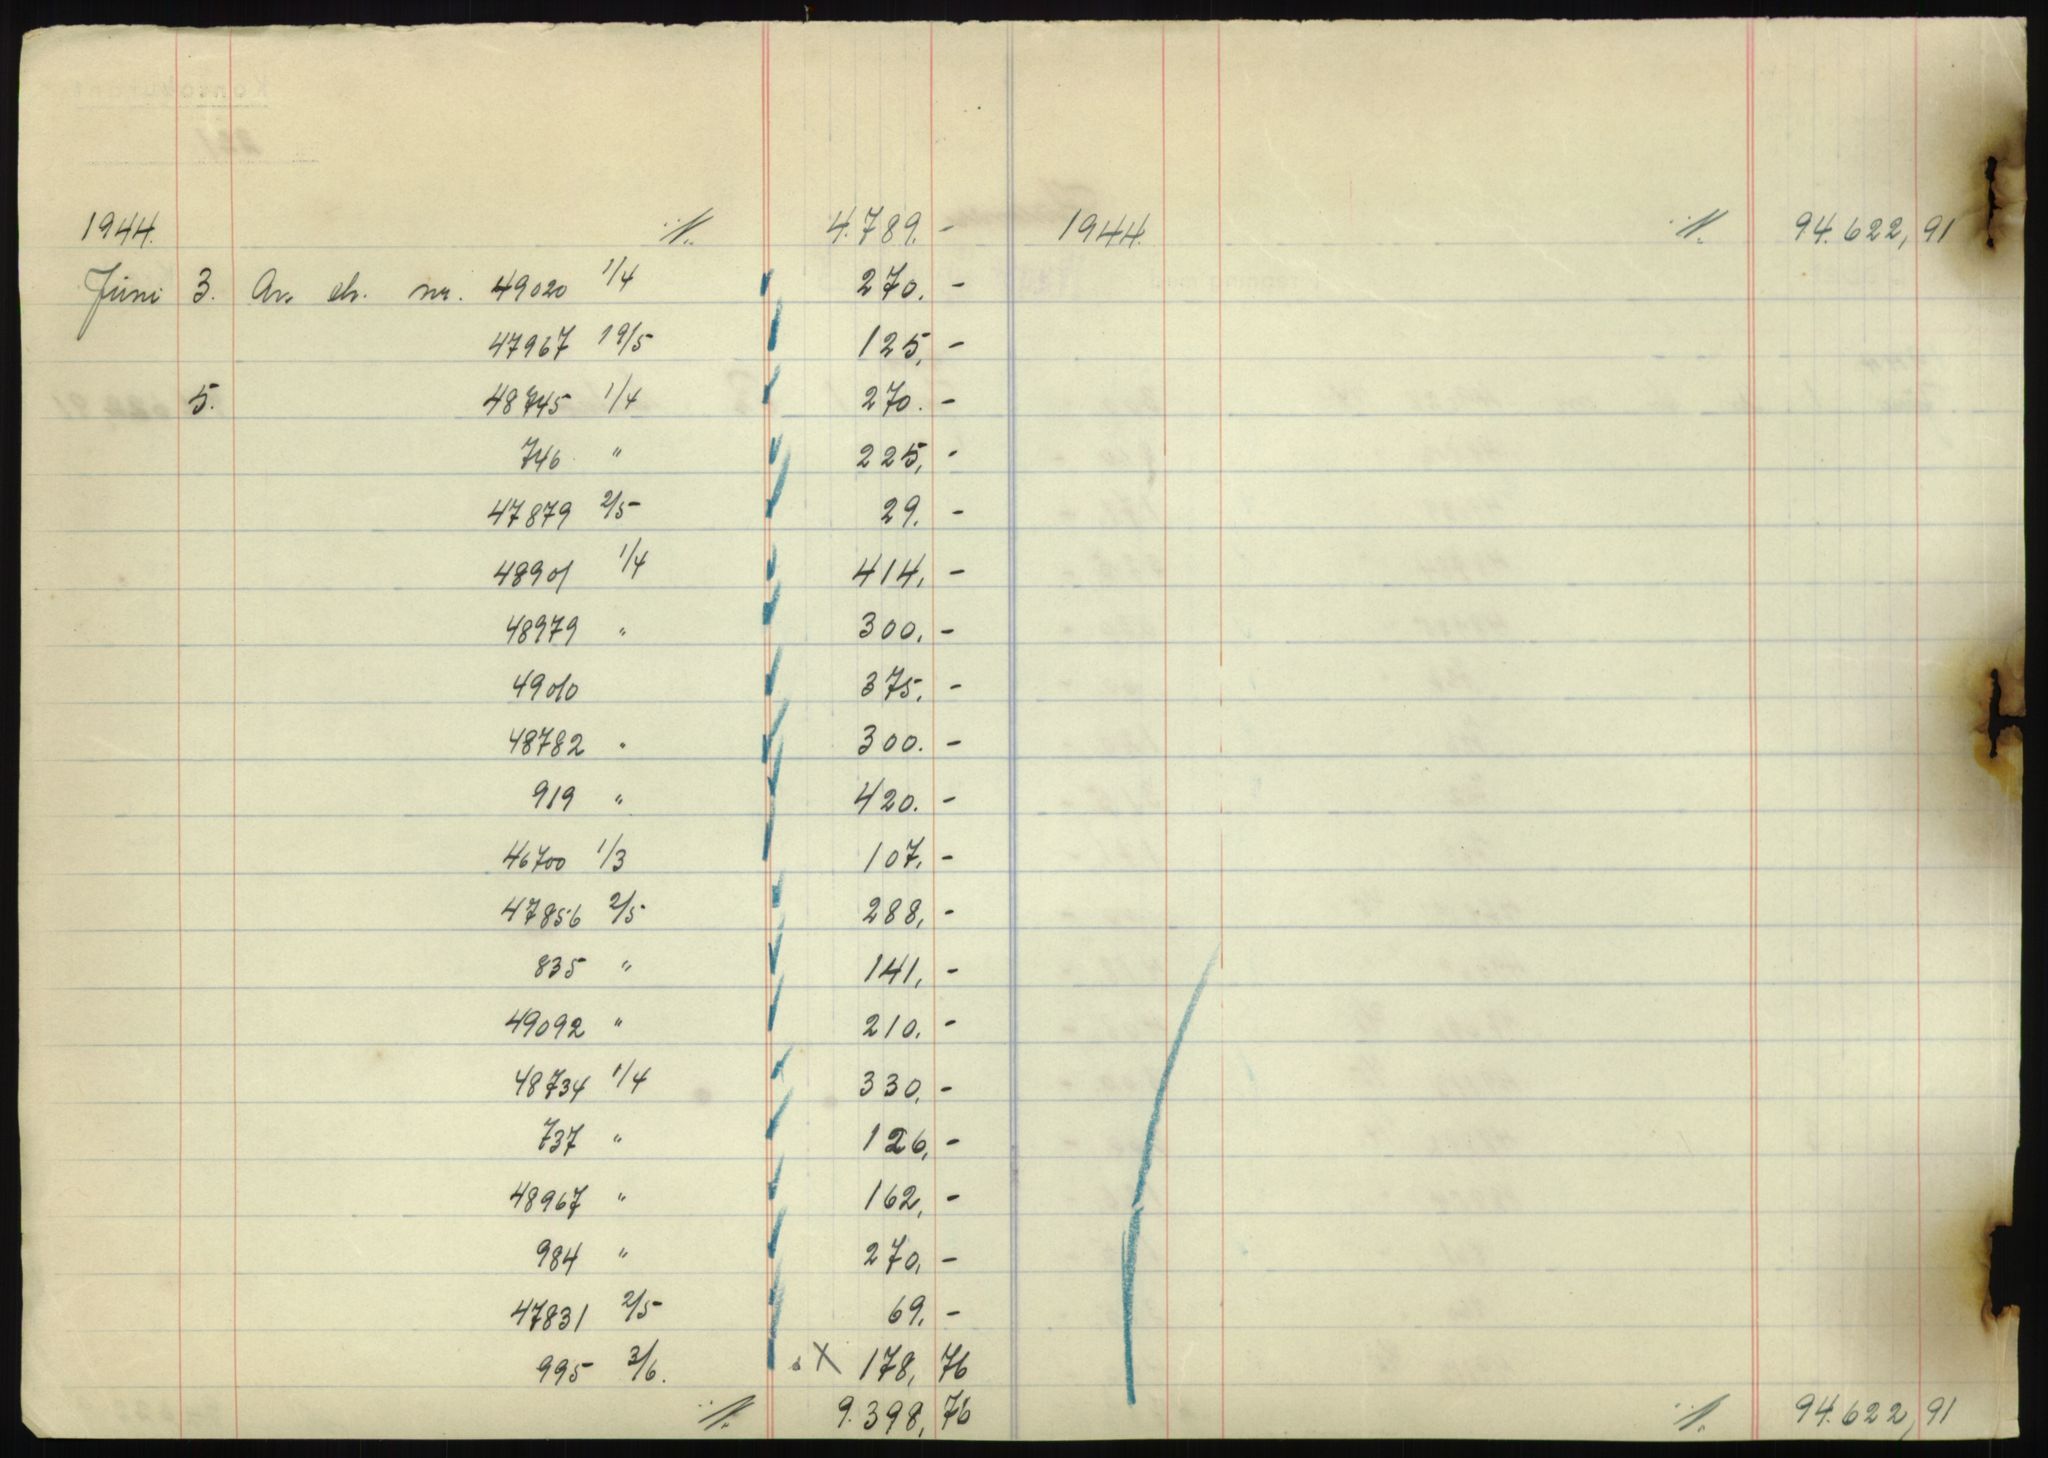 1944. ·/· 4.789. - 1944. ·/· 94.622,91
Juni 3. Av. ch. nr. 49020 1/4 270. -
47967 19/5 125, -
5. 48745 1/4 270. -
746 " 225, -
47879 2/5 29. -
48901 1/4 414, -
48979 " 300, -
49010 375. -
48782 " 300. -
919 " 420. -
46700 1/3 107, -
47856 2/5 288, -
835 " 141, -
49092 " 210. -
48734 1/4 330, -
737 " 126, -
48967 " 162, -
984 " 270, -
47831 2/5 69. -
995 3/6. X 178,76
·/· 9.398,76 ·/· 94.622,91